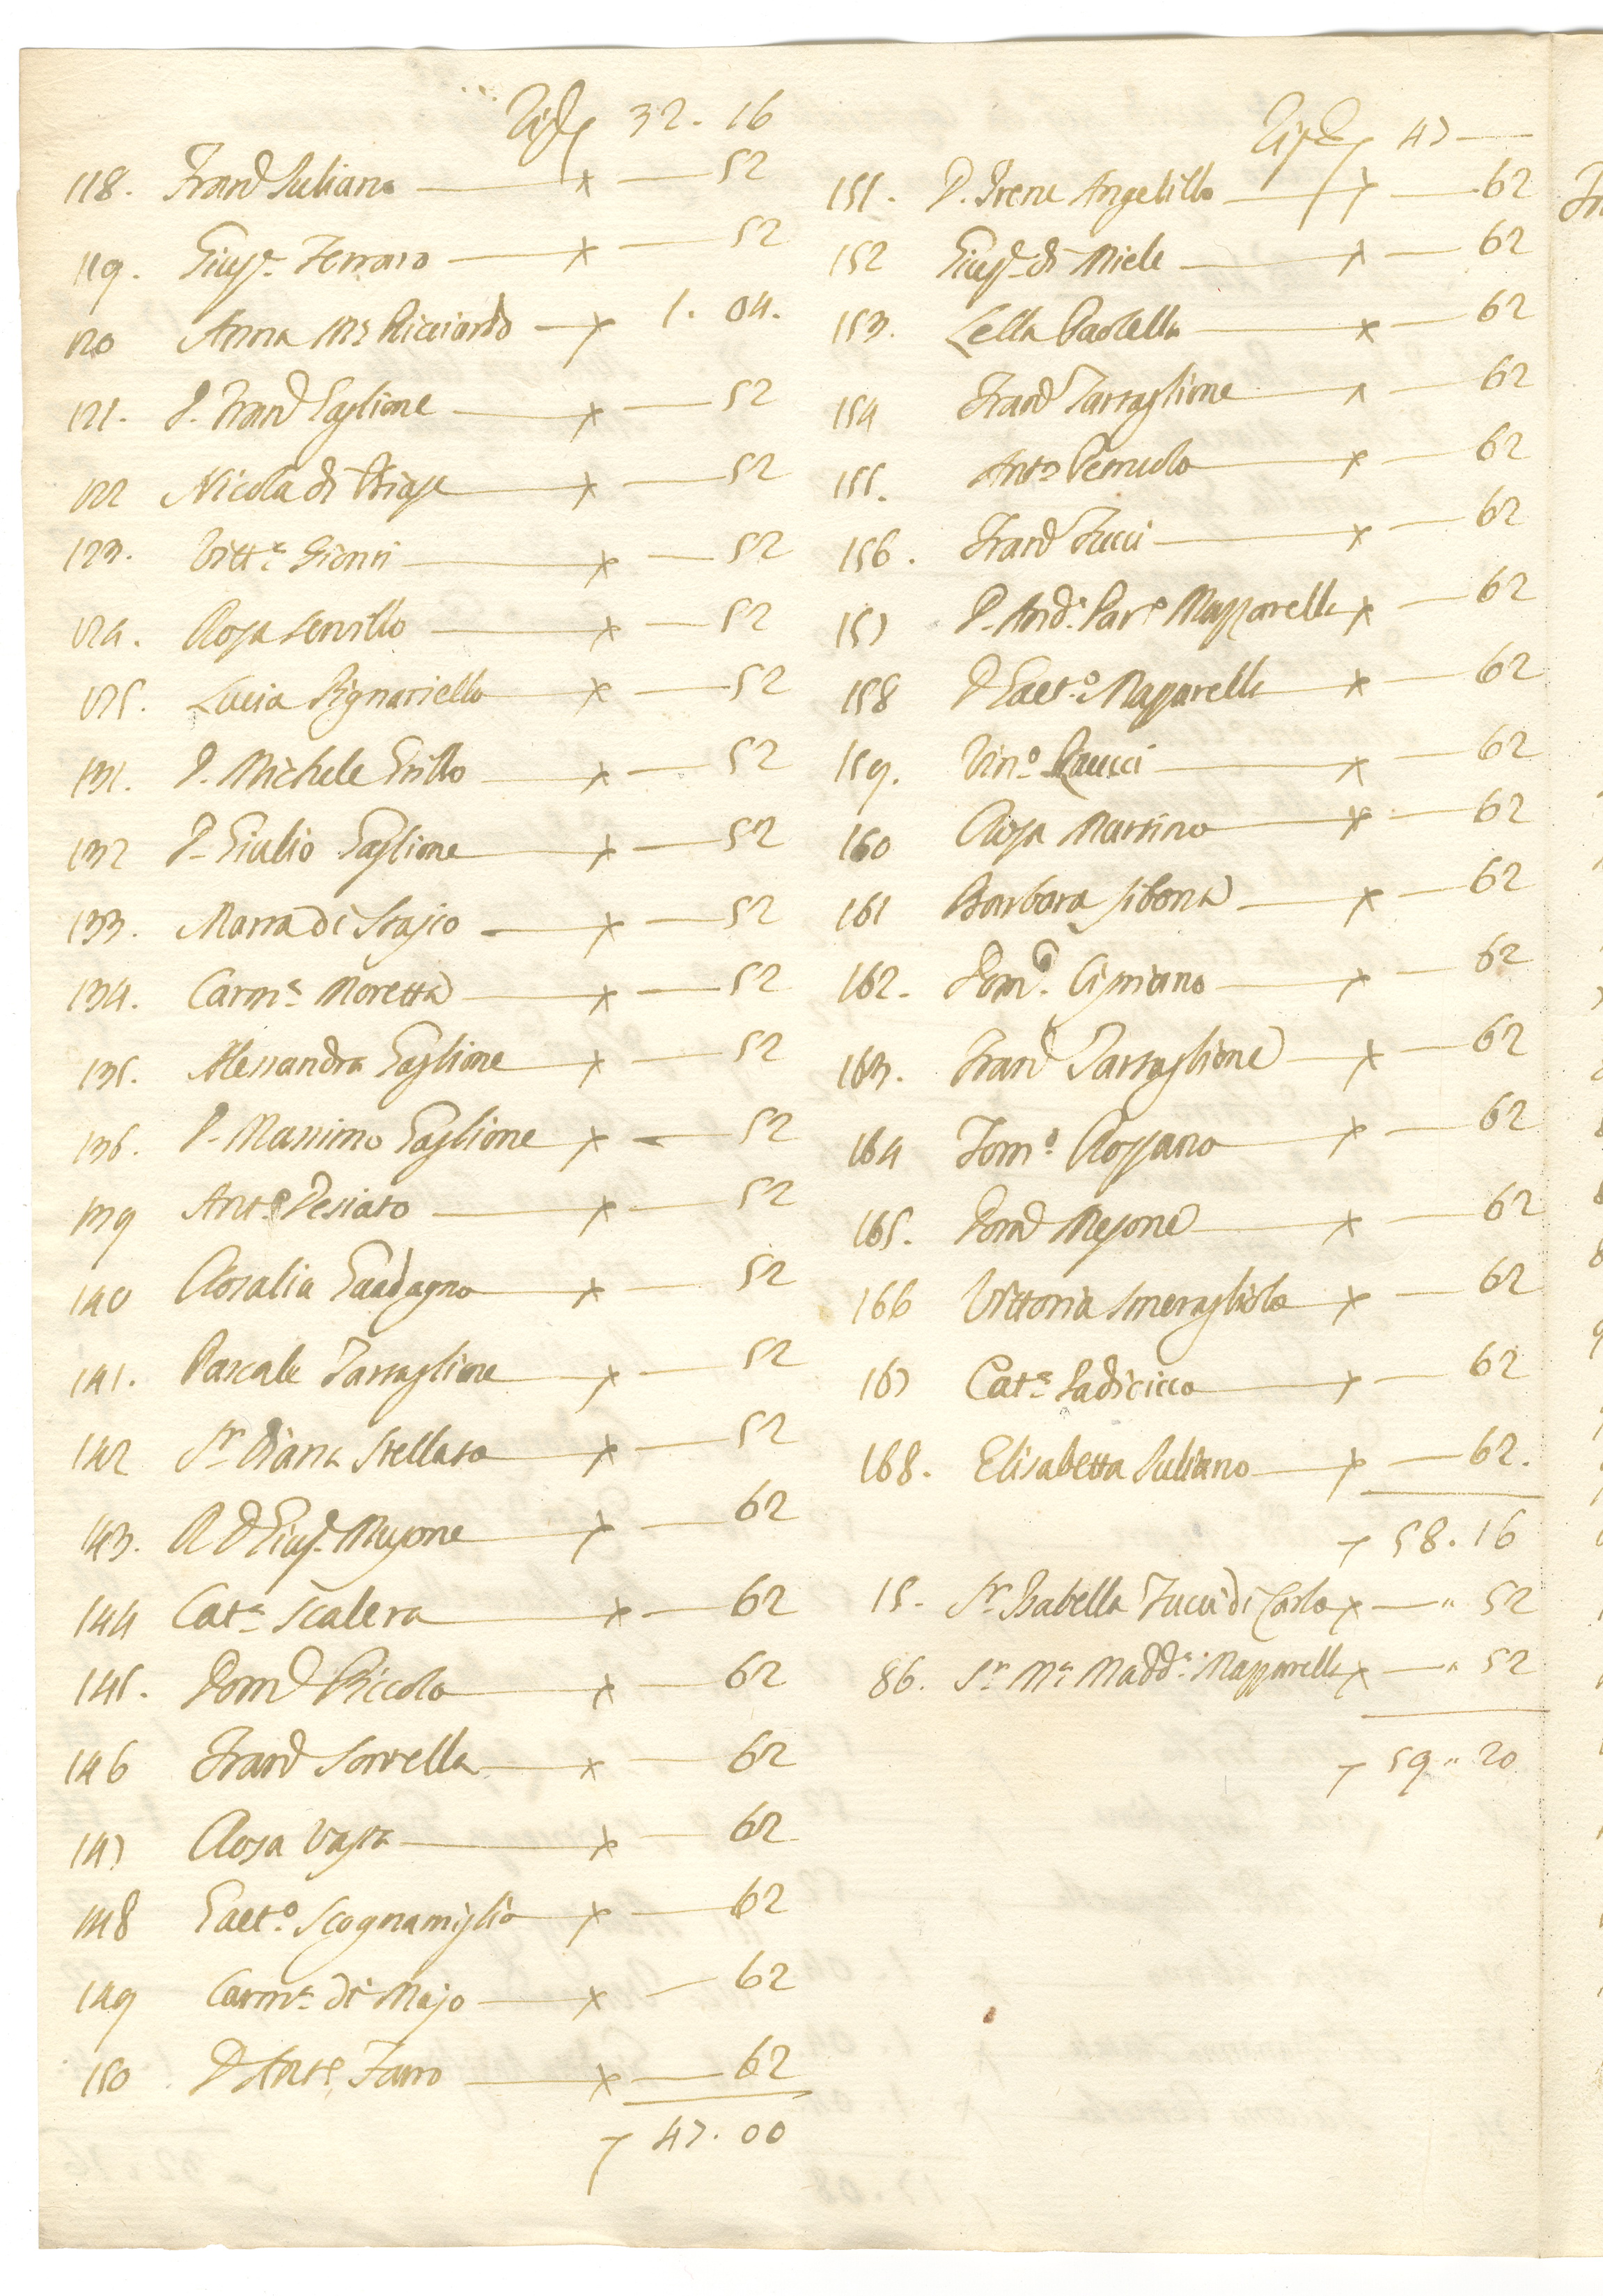 32. 16
118. Fran.ca Iuliano — x — 52
119. Giusp.e Ferraro — x — 52
120 Anna M.a Ricciardo — x 1. 04.
121. D. Fran.co Gaglione — x — 52
122 Nicola di Biase — x — 52
123. Vitt.a Gionti — x — 52
124. Rosa Servillo — x — 52
125. Lucia Pignatiello — x — 52
131. D. Michele Grillo — x — 52
132 D. Giulio Gaglione — x — 52
133. Marta di Stasio — x — 52
134. Carm.a Moretta — x — 52
135. Alessandra Gaglione — x — 52
136. D. Massimo Gaglione x — 52
139 Ant.o Desiato — x — 52
140 Rosalia Guadagno — x — 52
141. Pascale Tartaglione — x — 52
142 S.r Diana Stellato — x — 52
143. R. D. Gius.e Mezone — x — 62
144 Cat.a Scalera — x — 62
145. Dom.co Piccolo — x — 62
146 Fran.ca Sorvella — x — 62
147 Rosa Vasta — x — 62
148 Gaet.o Scognamiglio — x — 62
149 Carm.a di Majo — x — 62
150 D. Ant.o Farro — x — 62
47. 00
47 —
151. D. Irene Angelillo — x — 62
152 Giusp.e di Miele — x — 62
153. Lella Paolella — x — 62
154 Fran.co Tartaglione — x — 62
155. Ant.o Perruolo — x — 62
156. Fran.co Fucci — x — 62
157 D. And.a Par.o Mazzarella x — 62
158 D. Gaet.o Mazzarella — x — 62
159. Vin.o Raucci — x — 62
160 Rosa Martino — x — 62
161 Barbara — x — 62
162. Dom.co Cipriano — x — 62
163. Fran.co Tartaglione — x — 62
164 Tom.o Rossano — x — 62
165. Dom.co Mezone — x — 62
166 Vittoria Smeragliola — x — 62
167 Cat.a Ladicicco — x — 62
168. Elisabetta Iuliano — x — 62.
58. 16
15. S.r Isabella Fucci di Carlo x — " 52
86. S.r M.a Madd.a Mazzarella x — " 52
59 " 20